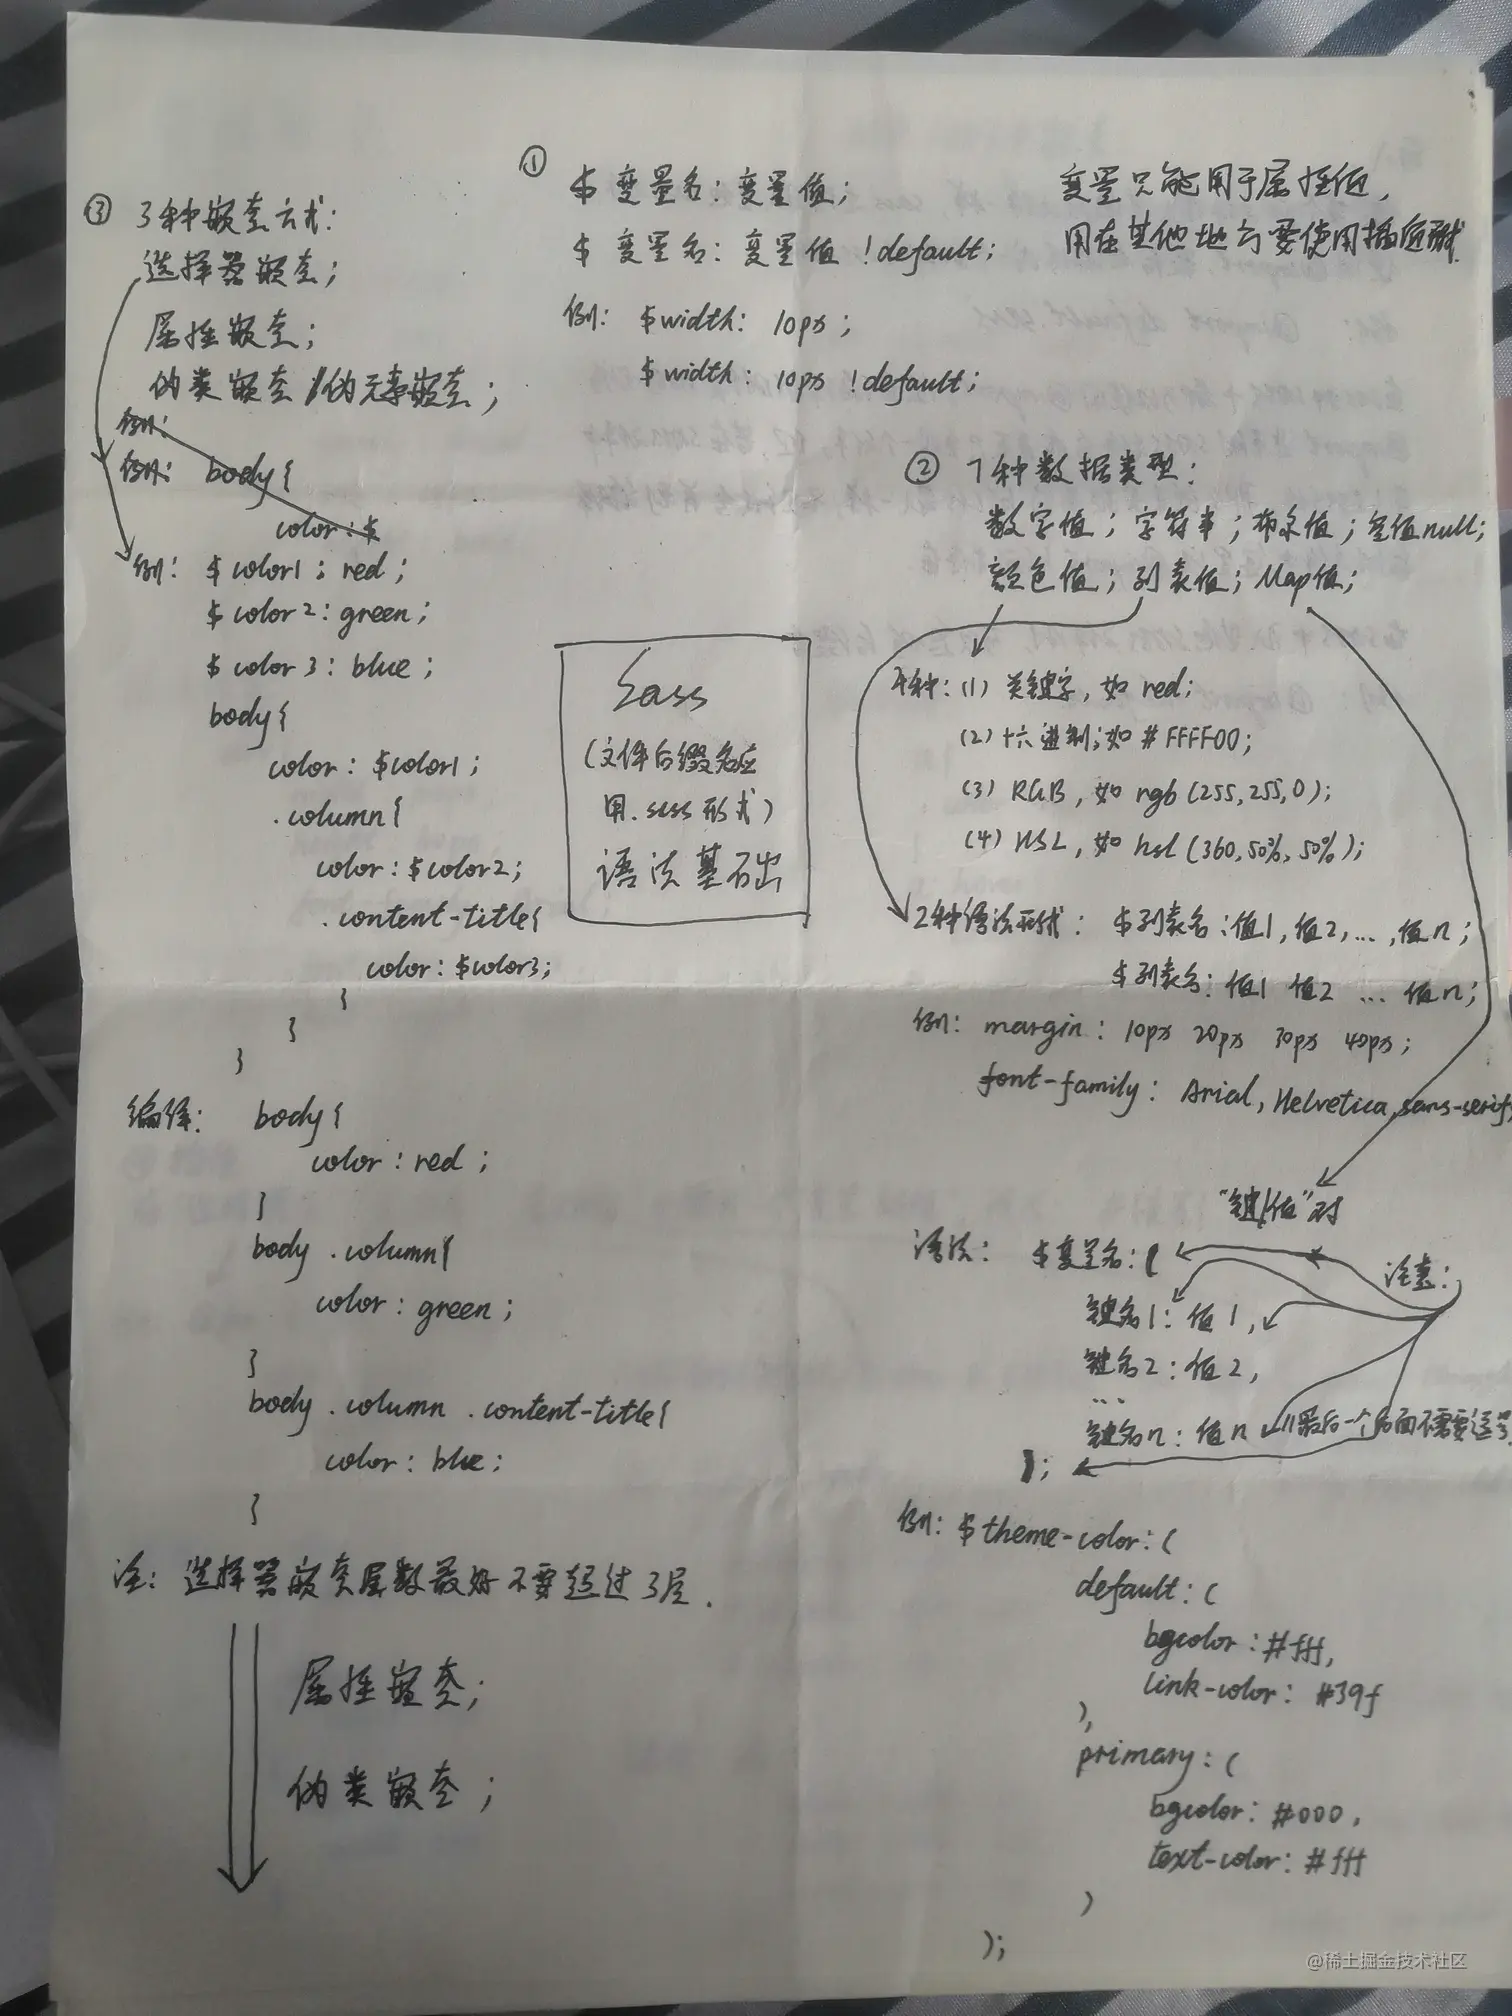 ①
$ 变量名：变量值；
$ 变量名：变量值 !default；
例：$width：10px；
$width：10px !default；
变量只能用于属性值，
用在其他地方要使用插值形式.
② 7种数据类型：
数字值；字符串；布尔值；空值null；
颜色值；列表值；Map值；
4种：(1) 关键字，如 red；
(2) 十六进制；如 #FFFF00；
(3) RGB，如 rgb(255,255,0)；
(4) HSL，如 hsl(360,50%,50%)；
2种语法形式：$列表名：值1，值2，…，值n；
$列表名：值1 值2 … 值n；
例：margin：10px 20px 30px 40px；
font-family：Arial，Helvetica，sans-serif；
"键/值"对
语法：$变量名：(
注意：
键名1：值1，
键名2：值2，
…
键名n：值n //最后一个后面不需要逗号
)；
例：$theme-color：(
default：(
bgcolor：#fff，
link-color：#39f
)，
primary：(
bgcolor：#000，
text-color：#fff
)
)；
Sass
(文件后缀名应
用.scss形式)
语法基础
③ 3种嵌套方式：
选择器嵌套；
属性嵌套；
伪类嵌套/伪元素嵌套；
例：
例：body{
color：$
例：$color1；red；
$color2：green；
$color3：blue；
body{
color：$color1；
.column{
color：$color2；
.content-title{
color：$color3；
}
}
}
编译：body{
color：red；
}
body .column{
color：green；
}
body .column .content-title{
color：blue；
}
注：选择器嵌套层数最好不要超过3层.
属性嵌套；
伪类嵌套；
@稀土掘金技术社区